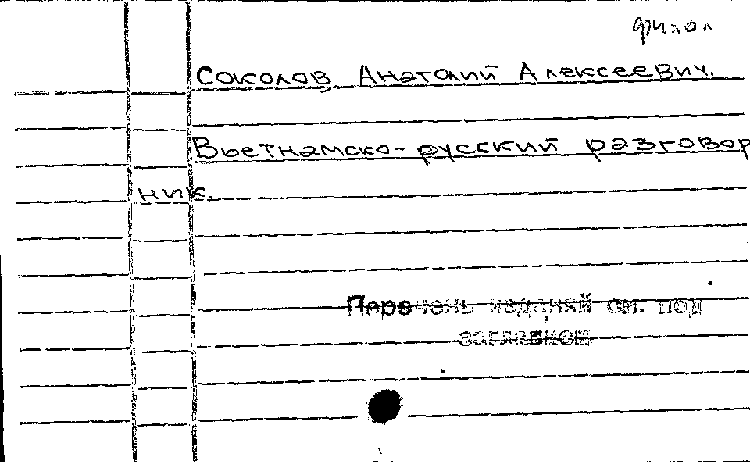 филол
Соколов, Анатолий Алексеевич.
Вьетнамско-русский разговор
ник.
Перечень изданий см. под
заглавием